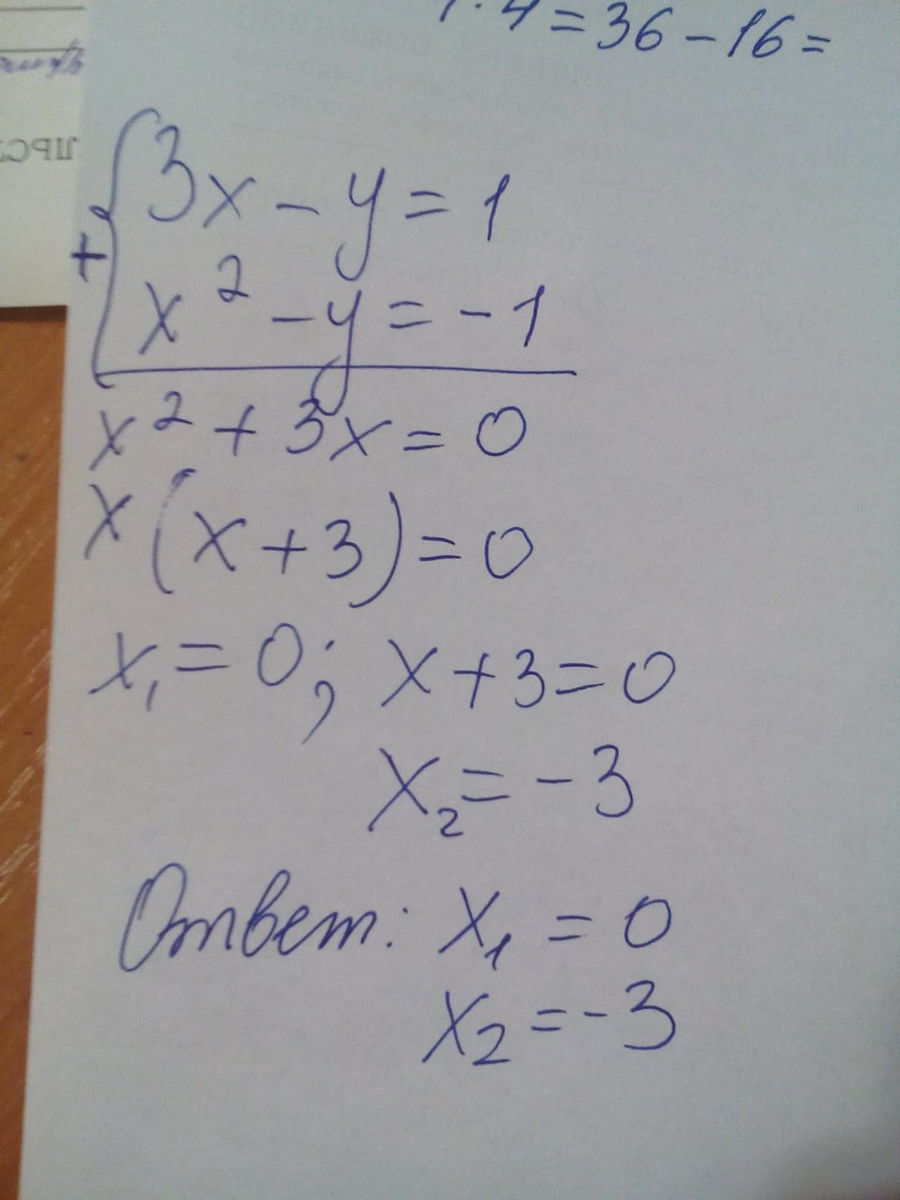 · 4 = 36 - 16 =
3x - y = 1
+
x² - y = -1
x² + 3x = 0
x (x + 3) = 0
x₁ = 0; x + 3 = 0
x₂ = -3
Ответ: x₁ = 0
x₂ = -3